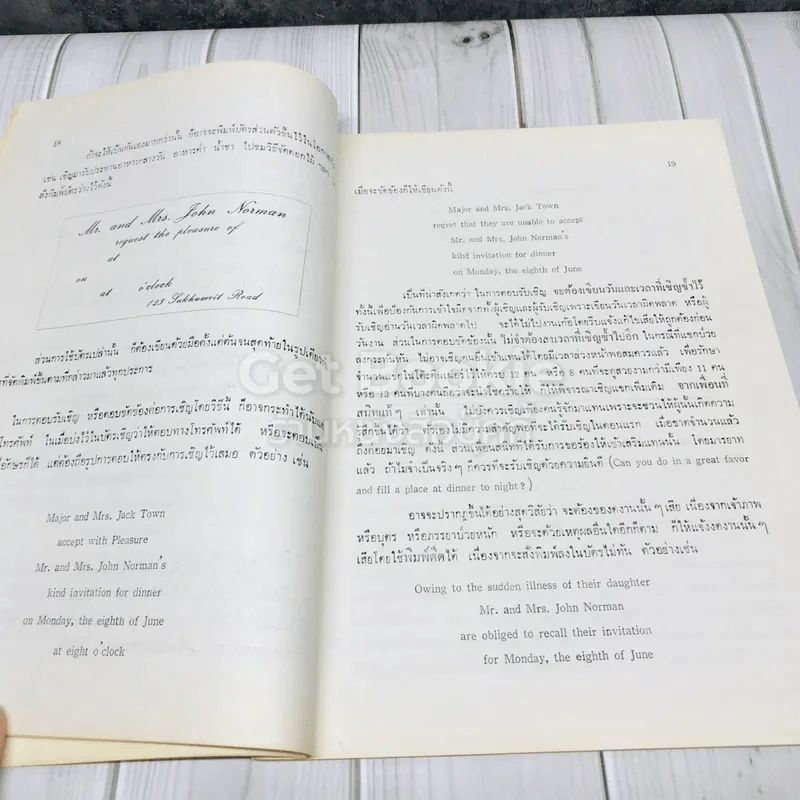 18
ถ้าจะให้เป็นกันเองมากกว่านั้น ก็อาจจะพิมพ์บัตรส่วนตัวขึ้นไว้ใน
เช่น เชิญมารับประทานอาหารกลางวัน อาหารค่ำ น้ำชา ไปชมวิธีจัดดอกไม้
สั่งพิมพ์บัตรว่างไว้ดังนี้
Mr. and Mrs. John Norman
request the pleasure of
at
on
at o'clock
123 Sukhumvit Road
ส่วนการใช้บัตรเปล่านั้น ก็ต้องเขียนด้วยมือตั้งแต่ต้นจนสุดท้ายในรูปเดียว
ที่จัดพิมพ์ขึ้นตามที่กล่าวมาแล้วทุกประการ
ในการตอบรับเชิญ หรือตอบขัดข้องต่อการเชิญโดยวิธีนี้ ก็อาจกระทำได้
โทรศัพท์ ในเมื่อบ่งไว้ในบัตรเชิญว่าให้ตอบทางโทรศัพท์ได้ หรือจะตอบเป็น
อักษรก็ได้ แต่ต้องถือรูปการตอบให้ตรงกับการเชิญไว้เสมอ ตัวอย่าง เช่น
Major and Mrs. Jack Town
accept with Pleasure
Mr. and Mrs. John Norman's
kind invitation for dinner
on Monday, the eighth of June
at eight o'clock
19
เมื่อจะขัดข้องก็ให้เขียนดังนี้
Major and Mrs. Jack Town
regret that they are unable to accept
Mr. and Mrs. John Norman's
kind invitation for dinner
on Monday, the eighth of June
เป็นที่น่าสังเกตว่า ในการตอบรับเชิญ จะต้องเขียนวันและเวลาที่เชิญซ้ำไว้
ทั้งนี้เพื่อป้องกันการเข้าใจผิดจากทั้งผู้เชิญและผู้รับเชิญเพราะเขียนวันเวลาผิดพลาด หรือผู้
รับเชิญอ่านวันเวลาผิดพลาดไป จะได้ไม่ไปงานเก้อโดยรีบแจ้งแก้ไขเสียให้ถูกต้องก่อน
วันงาน ส่วนในการตอบขัดข้องนั้น ไม่จำต้องลงเวลาที่เชิญซ้ำไปอีก ในกรณีที่แขกป่วย
ลงกระทันหัน ไม่อาจเชิญคนอื่นเข้าแทนได้โดยมีเวลาล่วงหน้าพอสมควรแล้ว เพื่อรักษา
จำนวนแขกในโต๊ะกินเนอร์ไว้ให้ครบ 12 คน หรือ 8 คนที่จะดูสวยงามกว่ามีเพียง 11 คน
หรือ 13 คนที่บางคนถือว่าจะนำโชคร้ายให้ ก็ให้พิจารณาเชิญแขกเพิ่มเติม จากเพื่อนที่
สนิทแท้ๆ เท่านั้น ไม่บังควรเชิญเพียงคนรู้จักมาแทนเพราะจะชวนให้ผู้นั้นเกิดความ
รู้สึกกินใจว่า ตัวเองไม่มีความสำคัญพอที่จะได้รับเชิญในตอนแรก เมื่อขาดจำนวนแล้ว
ถึงค่อยมาเชิญ ดังนี้ ส่วนเพื่อนสนิทที่ได้รับการขอร้องให้เสริมแทนนั้น โดยมารยาท
แล้ว ถ้าไม่จำเป็นจริงๆ ก็ควรที่จะรับเชิญด้วยความยินดี (Can you do in a great favor
and fill a place at dinner to night?)
อาจจะปรากฏขึ้นได้อย่างสุดวิสัยว่า จะต้องของดงานนั้นๆ เสีย เนื่องจากเจ้าภาพ
หรือบุตร หรือภรรยาป่วยหนัก หรือจะด้วยเหตุผลอื่นใดอีกก็ตาม ก็ให้แจ้งงดงานนั้นๆ
เสียโดยใช้พิมพ์ดีดได้ เนื่องจากจะสั่งพิมพ์ลงในบัตรไม่ทัน ตัวอย่างเช่น
Owing to the sudden illness of their daughter
Mr. and Mrs. John Norman
are obliged to recall their invitation
for Monday, the eighth of June